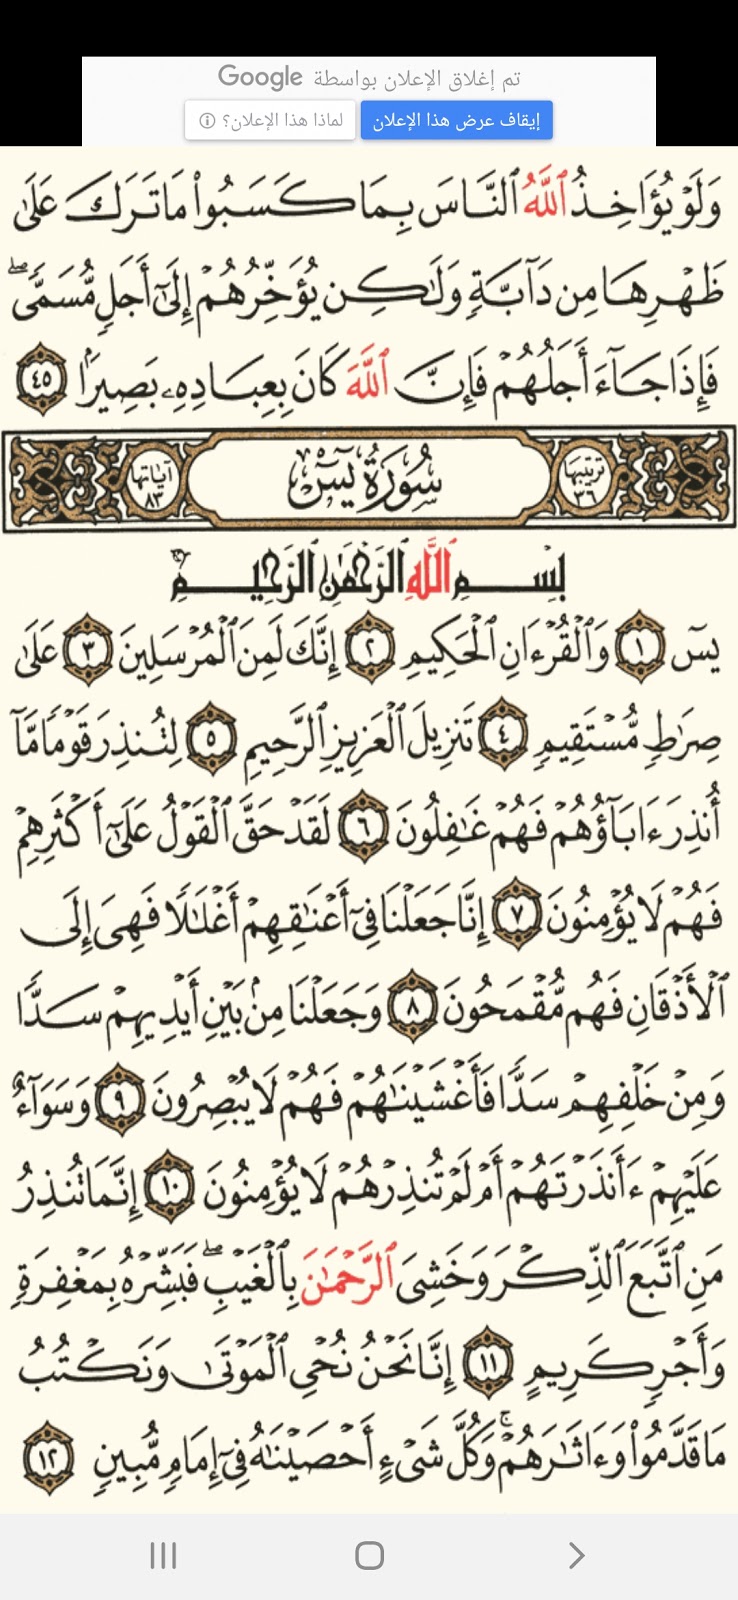 تم إغلاق الإعلان بواسطة Google
إيقاف عرض هذا الإعلان
لماذا هذا الإعلان؟
وَلَوۡ يُؤَاخِذُ ٱللَّهُ ٱلنَّاسَ بِمَا كَسَبُواْ مَا تَرَكَ عَلَىٰ
ظَهۡرِهَا مِن دَآبَّةٖ وَلَٰكِن يُؤَخِّرُهُمۡ إِلَىٰٓ أَجَلٖ مُّسَمّٗىۖ
فَإِذَا جَآءَ أَجَلُهُمۡ فَإِنَّ ٱللَّهَ كَانَ بِعِبَادِهِۦ بَصِيرَۢا ٤٥
ترتيبها ٣٦ سُورَةُ يسٓ آياتها ٨٣
بِسۡمِ ٱللَّهِ ٱلرَّحۡمَٰنِ ٱلرَّحِيمِ
يسٓ ١ وَٱلۡقُرۡءَانِ ٱلۡحَكِيمِ ٢ إِنَّكَ لَمِنَ ٱلۡمُرۡسَلِينَ ٣ عَلَىٰ
صِرَٰطٖ مُّسۡتَقِيمٖ ٤ تَنزِيلَ ٱلۡعَزِيزِ ٱلرَّحِيمِ ٥ لِتُنذِرَ قَوۡمٗا مَّآ
أُنذِرَ ءَابَآؤُهُمۡ فَهُمۡ غَٰفِلُونَ ٦ لَقَدۡ حَقَّ ٱلۡقَوۡلُ عَلَىٰٓ أَكۡثَرِهِمۡ
فَهُمۡ لَا يُؤۡمِنُونَ ٧ إِنَّا جَعَلۡنَا فِيٓ أَعۡنَٰقِهِمۡ أَغۡلَٰلٗا فَهِيَ إِلَى
ٱلۡأَذۡقَانِ فَهُم مُّقۡمَحُونَ ٨ وَجَعَلۡنَا مِنۢ بَيۡنِ أَيۡدِيهِمۡ سَدّٗا
وَمِنۡ خَلۡفِهِمۡ سَدّٗا فَأَغۡشَيۡنَٰهُمۡ فَهُمۡ لَا يُبۡصِرُونَ ٩ وَسَوَآءٌ
عَلَيۡهِمۡ ءَأَنذَرۡتَهُمۡ أَمۡ لَمۡ تُنذِرۡهُمۡ لَا يُؤۡمِنُونَ ١٠ إِنَّمَا تُنذِرُ
مَنِ ٱتَّبَعَ ٱلذِّكۡرَ وَخَشِيَ ٱلرَّحۡمَٰنَ بِٱلۡغَيۡبِۖ فَبَشِّرۡهُ بِمَغۡفِرَةٖ
وَأَجۡرٖ كَرِيمٍ ١١ إِنَّا نَحۡنُ نُحۡيِ ٱلۡمَوۡتَىٰ وَنَكۡتُبُ
مَا قَدَّمُواْ وَءَاثَٰرَهُمۡۚ وَكُلَّ شَيۡءٍ أَحۡصَيۡنَٰهُ فِيٓ إِمَامٖ مُّبِينٖ ١٢